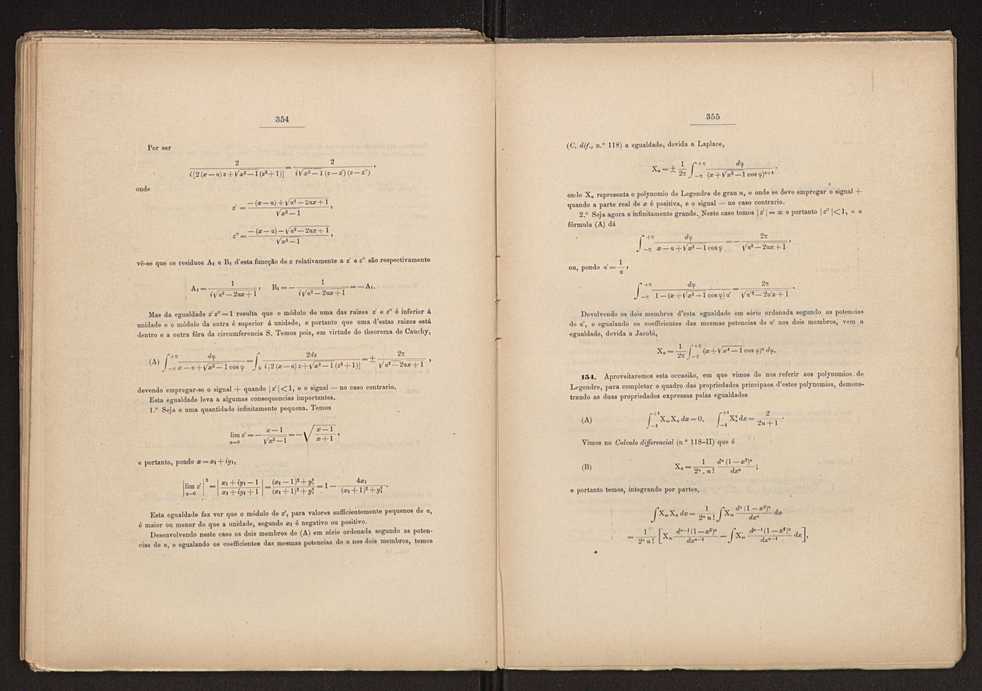 354
Por ser
2 / i[2(x−u)z+√x²−1(z²+1)] = 2 / i√x²−1(z−z′)(z−z″),
onde
z′ = −(x−u)+√u²−2ux+1 / √x²−1,
z″ = −(x−u)−√u²−2ux+1 / √x²−1,
vê-se que os residuos A₁ e B₁ d'esta funcção de z relativamente a z′ e z″ são respectivamente
A₁ = 1 / i√u²−2ux+1, B₁ = − 1 / i√u²−2ux+1 = −A₁.
Mas da egualdade z′z″=1 resulta que o módulo de uma das raizes z′ e z″ é inferior á
unidade e o módulo da outra é superior á unidade, e portanto que uma d'estas raizes está
dentro e a outra fóra da circumferencia S. Temos pois, em virtude do theorema de Cauchy,
(A) ∫₋π⁺π dφ / x−u+√x²−1 cos φ = ∫ₛ 2dz / i[2(x−u)z+√x²−1(z²+1)] = ± 2π / √u²−2ux+1,
devendo empregar-se o signal + quando |z′|<1, e o signal — no caso contrario.
Esta egualdade leva a algumas consequencias importantes.
1.º Seja u uma quantidade infinitamente pequena. Temos
lim z′ u=0 = − x−1 / √x²−1 = −√ x−1 / x+1,
e portanto, pondo x=x₁+iy₁,
|lim z′ u=0|² = |x₁+iy₁−1 / x₁+iy₁+1| = (x₁−1)²+y₁² / (x₁+1)²+y₁² = 1 − 4x₁ / (x₁+1)²+y₁².
Esta egualdade faz ver que o módulo de z′, para valores sufficientemente pequenos de u,
é maior ou menor do que a unidade, segundo x₁ é negativo ou positivo.
Desenvolvendo neste caso os dois membros de (A) em série ordenada segundo as poten-
cias de u, e egualando os coefficientes das mesmas potencias de u nos dois membros, temos
355
(C. dif., n.º 118) a egualdade, devida a Laplace,
Xₙ = ± 1/2π ∫₋π⁺π dφ / (x+√x²−1 cos φ)ⁿ⁺¹,
onde Xₙ representa o polynomio de Legendre de grau n, e onde se deve empregar o signal +
quando a parte real de x é positiva, e o signal — no caso contrario.
2.º Seja agora u infinitamente grande. Neste caso temos |z′|=∞ e portanto |z″|<1, e a
fórmula (A) dá
∫₋π⁺π dφ / x−u+√x²−1 cos φ = − 2π / √u²−2ux+1,
ou, pondo u′ = 1/u,
∫₋π⁺π dφ / 1−(x+√x²−1 cos φ)u′ = 2π / √u′²−2u′x+1.
Devolvendo os dois membros d'esta egualdade em série ordenada segundo as potencias
de u′, e egualando os coefficientes das mesmas potencias de u′ nos dois membros, vem a
egualdade, devida a Jacobi,
Xₙ = 1/2π ∫₋π⁺π (x+√x²−1 cos φ)ⁿ dφ.
154. Aproveitaremos esta occasião, em que vimos de nos referir aos polynomios de
Legendre, para completar o quadro das propriedades principaes d'estes polynomios, demons-
trando as duas propriedades expressas pelas egualdades
(A) ∫₋₁⁺¹ XₘXₙ dx=0, ∫₋₁⁺¹ Xₙ² dx = 2 / 2n+1.
Vimos no Calculo differencial (n.º 118-II) que é
(B) Xₙ = 1 / 2ⁿ . n! dⁿ(1−x²)ⁿ / dxⁿ;
e portanto temos, integrando por partes,
∫XₘXₙ dx = 1 / 2ⁿ n! ∫Xₘ dⁿ(1−x²)ⁿ / dxⁿ dx
= 1 / 2ⁿ n! [Xₘ dⁿ⁻¹(1−x²)ⁿ / dxⁿ⁻¹ − ∫X′ₘ dⁿ⁻¹(1−x²)ⁿ / dxⁿ⁻¹ dx],